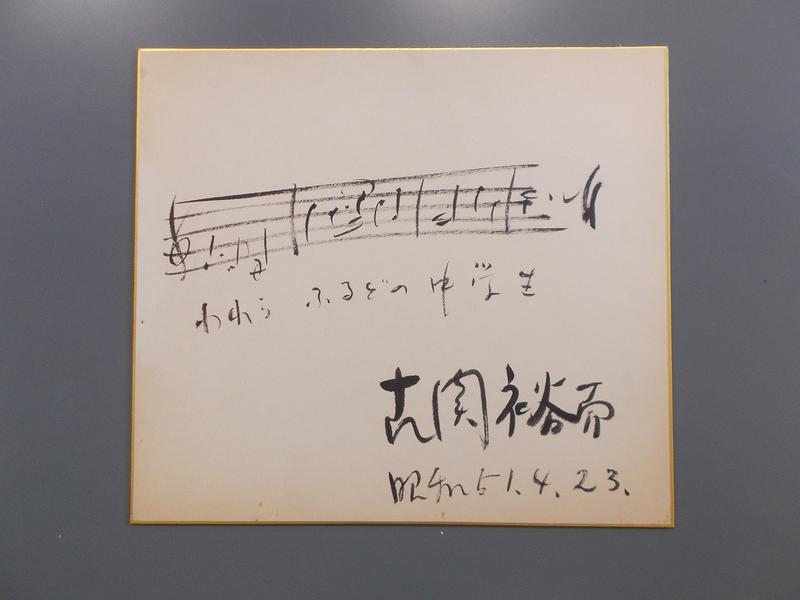 われら ふるどの中学生
古関裕而
昭和51.4.23.